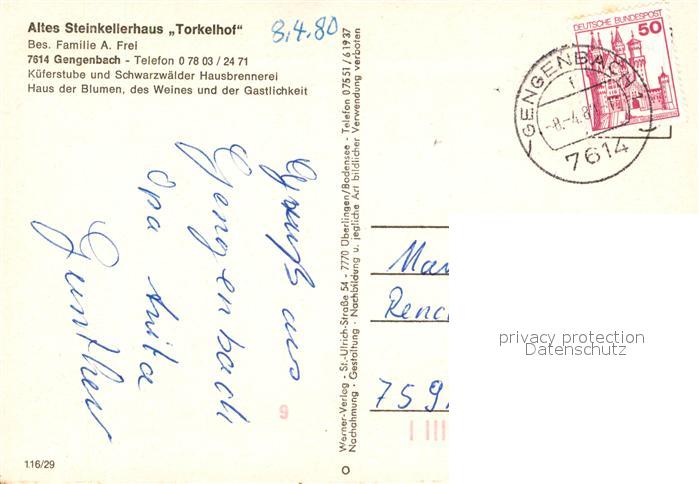 Altes Steinkellerhaus „Torkelhof“
Bes. Familie A. Frei
7614 Gengenbach - Telefon 0 78 03 / 24 71
Küferstube und Schwarzwälder Hausbrennerei
Haus der Blumen, des Weines und der Gastlichkeit
8.4.80
DEUTSCHE BUNDESPOST
50
GENGENBACH 1
-8.-4.8
7614
Gruß aus
Gengenbach
Opa Anita
Gunther
Werner-Verlag - St.-Ulrich-Straße 54 - 7770 Überlingen/Bodensee - Telefon 0 75 51 / 6 19 37
Nachahmung - Gestaltung - Nachbildung u. jegliche Art bildlicher Verwendung verboten
Man
Renc
759
privacy protection
Datenschutz
9
116/29